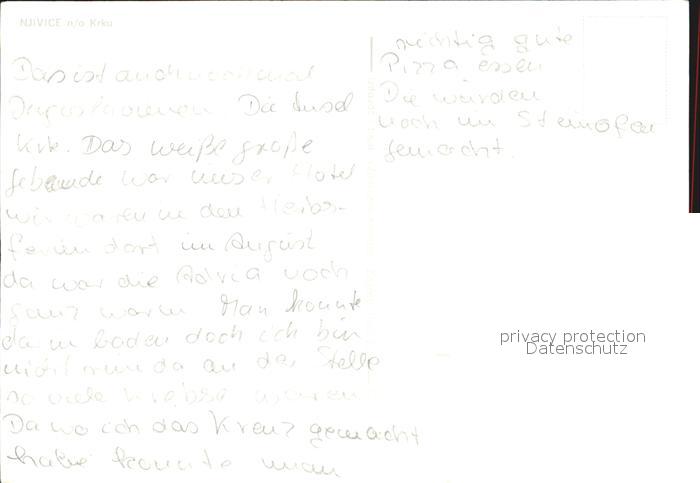 NJIVICE n/o Krku
Das ist auch nochmal
Jugoslawien. Die Insel
Krk. Das weiße große
gebeude war unser Hotel
wir waren in den Herbs-
ferien dort im August
da war die Adria noch
ganz warm Man konnte
da baden doch ich bin
nicht da an der Stelle
so viele Krebse waren
Da wo ich das Kreuz gemacht
habe konnte man
richtig gute
Pizza essen
Die wurden
noch im Steinofen
gemacht.
privacy protection
Datenschutz